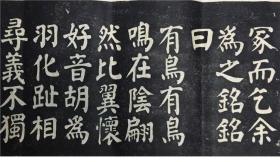 冢而乞余
為之銘銘
曰
有鳥有鳥
鳴在陰翩
然比翼懷
好音胡為
羽化趾相
尋義不獨